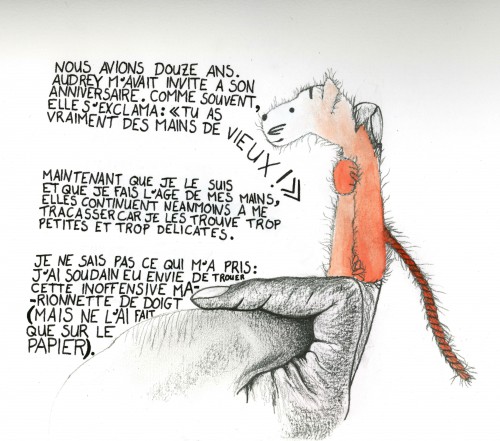 NOUS AVIONS DOUZE ANS.
AUDREY M'AVAIT INVITE A SON
ANNIVERSAIRE. COMME SOUVENT,
ELLE S'EXCLAMA: «TU AS
VRAIMENT DES MAINS DE VIEUX!»
MAINTENANT QUE JE LE SUIS
ET QUE JE FAIS L'AGE DE MES MAINS,
ELLES CONTINUENT NEANMOINS A ME
TRACASSER CAR JE LES TROUVE TROP
PETITES ET TROP DELICATES.
JE NE SAIS PAS CE QUI M'A PRIS:
J'AI SOUDAIN EU ENVIE DE TROUER
CETTE INOFFENSIVE MA-
-RIONNETTE DE DOIGT
(MAIS NE L'AI FAIT
QUE SUR LE
PAPIER).